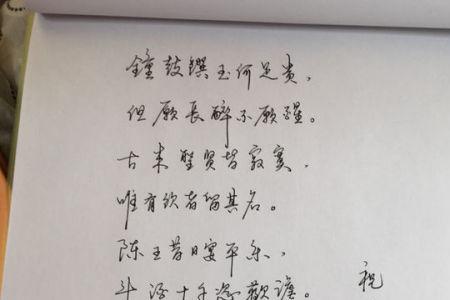 鐘鼓饌玉何足贵，
但願長醉不願醒。
古来聖賢皆寂寞，
唯有饮者留其名。
陈王昔日宴平乐，
斗酒十千恣歡謔。
祝